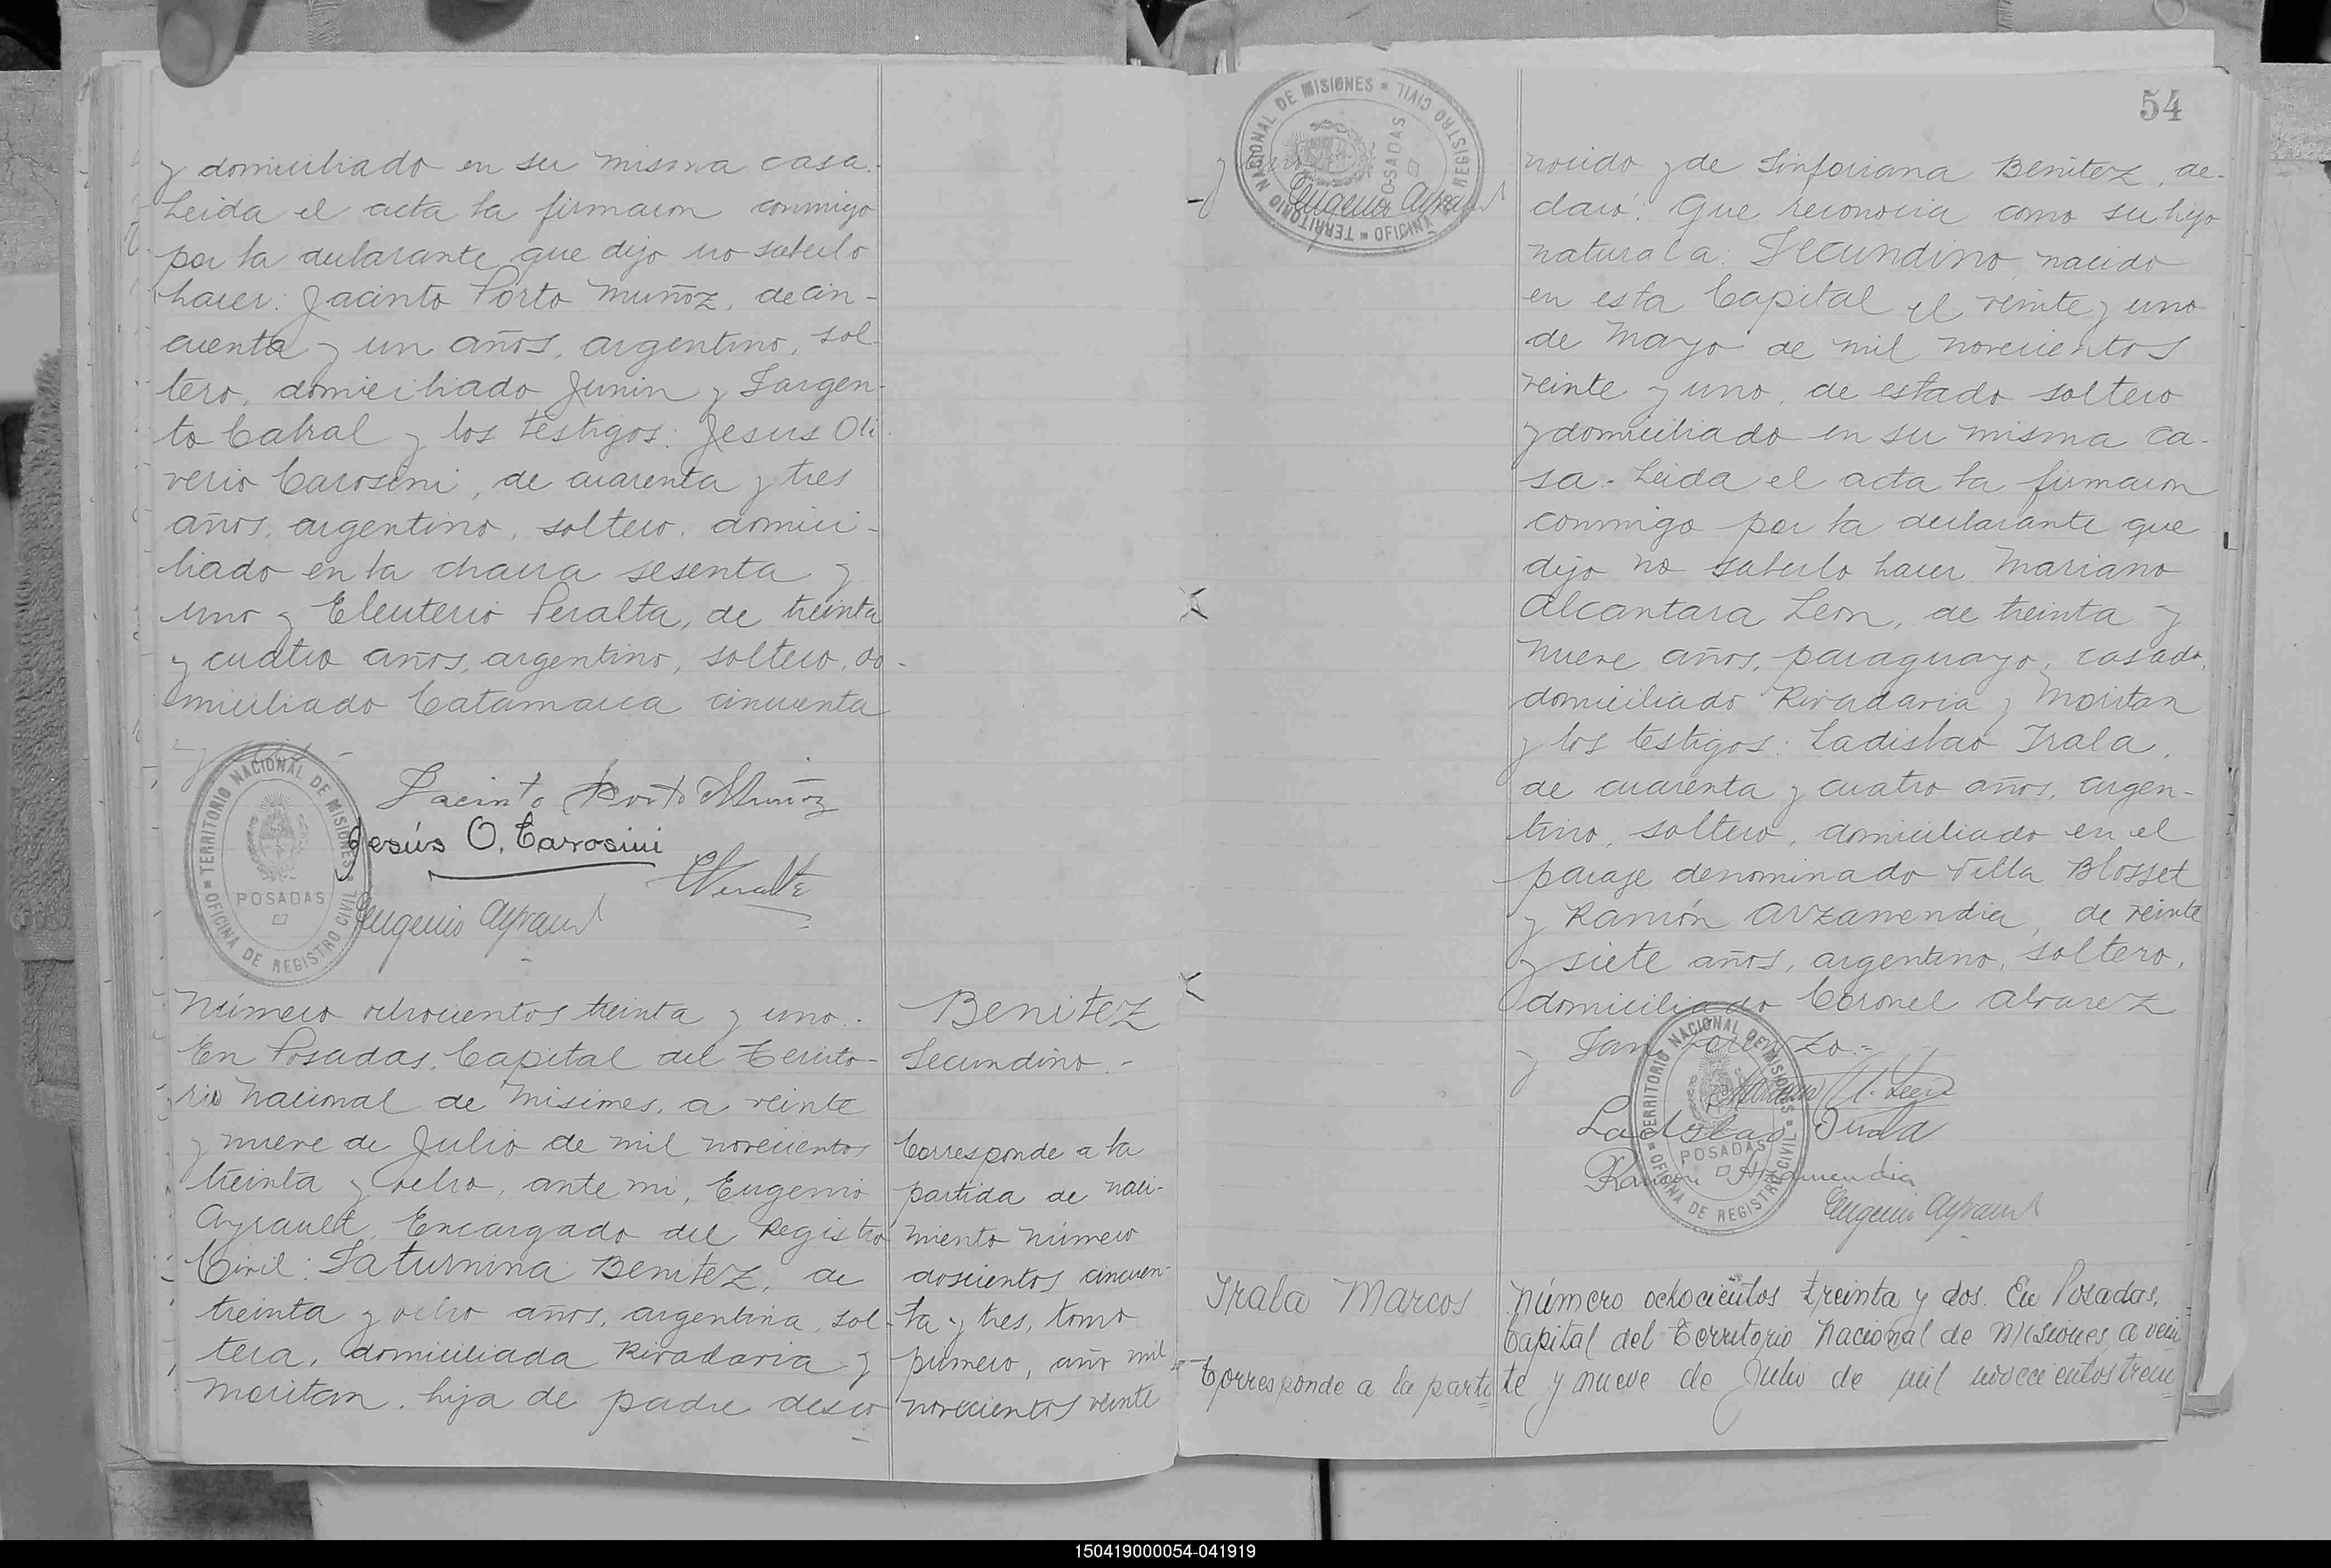 y domiciliado en su misma casa.
Leida el acta la firmaron conmigo
por la declarante que dijo no saberlo
hacer: Jacinto Porto Muñoz, de cin-
cuenta y un años, argentino, sol-
tero, domiciliado Junin y Sargen-
to Cabral y los testigos: Jesus Oli-
verio Carosini, de cuarenta y tres
años, argentino, soltero, domici-
liado en la chacra sesenta y
uno y Eleuterio Peralta, de treinta
y cuatro años, argentino, soltero, do-
miciliado Catamarca cincuenta
y
Jacinto Porto Muñoz
Jesús O. Carosini
EPeralta
Eugenio Ayrault
TERRITORIO NACIONAL DE MISIONES
POSADAS
OFICINA DE REGISTRO CIVIL
Número ochocientos treinta y uno.
En Posadas, Capital del Territo-
rio Nacional de Misiones, a veinte
y nueve de Julio de mil novecientos
treinta y ocho, ante mi, Eugenio
Ayrault, Encargado del Registro
Civil: Saturnina Benitez, de
treinta y ocho años, argentina, sol-
tera, domiciliada Rivadavia y
Moritan, hija de padre desco
Benitez
Secundino.-
Corresponde a la
partida de naci-
miento número
doscientos cincuen-
ta y tres, tomo
primero, año mil
novecientos veinte
54
y uno
Eugenio Ayrault
TERRITORIO NACIONAL DE MISIONES
POSADAS
OFICINA REGISTRO CIVIL
nocido y de Sinforiana Benitez, de-
claró: Que reconocia como su hijo
natural a: Secundino, nacido
en esta Capital el veinte y uno
de Mayo de mil novecientos
veinte y uno, de estado soltero
y domiciliado en su misma ca-
sa.- Leida el acta la firmaron
conmigo por la declarante que
dijo no saberlo hacer Mariano
Alcantara Leon, de treinta y
nueve años, paraguayo, casado,
domiciliado Rivadavia y Moritan
y los testigos: Ladislao Irala,
de cuarenta y cuatro años, argen-
tino, soltero, domiciliado en el
paraje denominado Villa Blosset
y Ramón Arzamendia, de veinte
y siete años, argentino, soltero,
domiciliado Coronel Alvarez
y San Lorenzo.-
Mariano A. Leon
Ladislao Irala
Ramón Arzamendia
Eugenio Ayrault
TERRITORIO NACIONAL DE MISIONES
POSADAS
OFICINA DE REGISTRO CIVIL
Irala Marcos
Corresponde a la parti
Número ochocientos treinta y dos. En Posadas,
Capital del Territorio Nacional de Misiones, a vein
te y nueve de Julio de mil novecientos trein
150419000054-041919